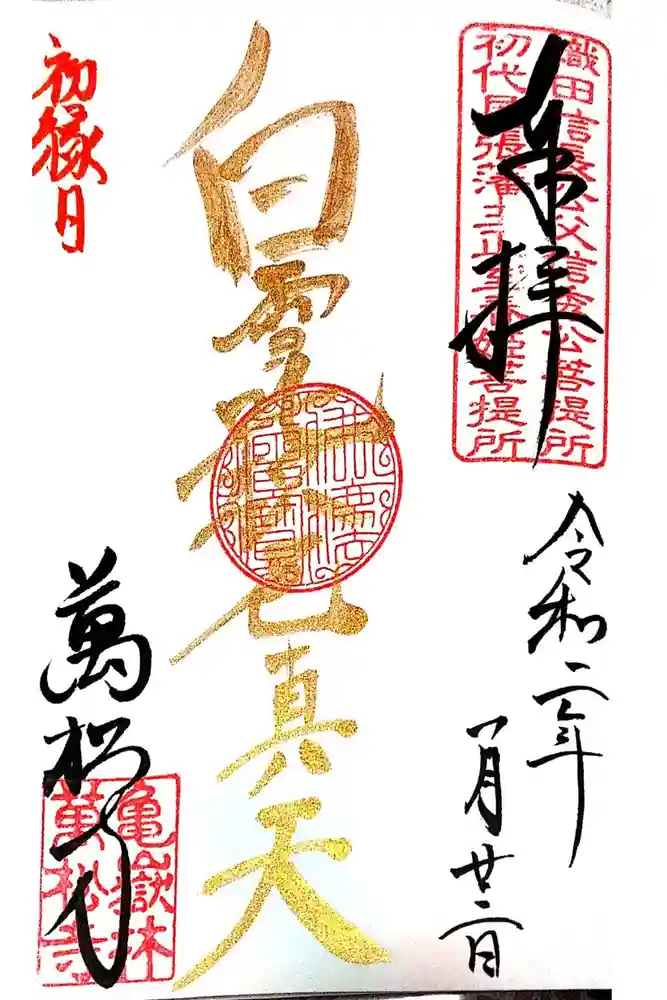 奉拝
織田信長公父信秀公菩提所
初代尾張藩主正室春姫菩提所
令和二年
一月廿二日
白雪吒枳尼真天
初縁日
萬松寺
亀嶽林
萬松寺